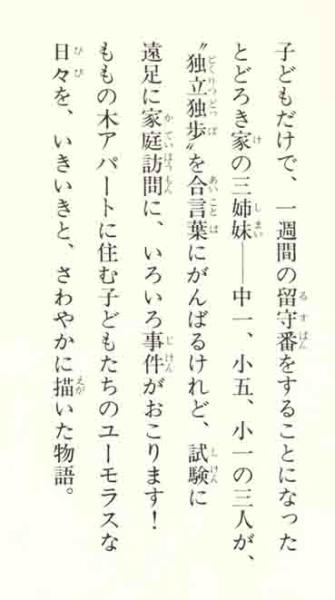 子どもだけで、一週間の留守番をすることになった
とどろき家の三姉妹――中一、小五、小一の三人が、
〝独立独歩〟を合言葉にがんばるけれど、試験に
遠足に家庭訪問に、いろいろ事件がおこります！
ももの木アパートに住む子どもたちのユーモラスな
日々を、いきいきと、さわやかに描いた物語。